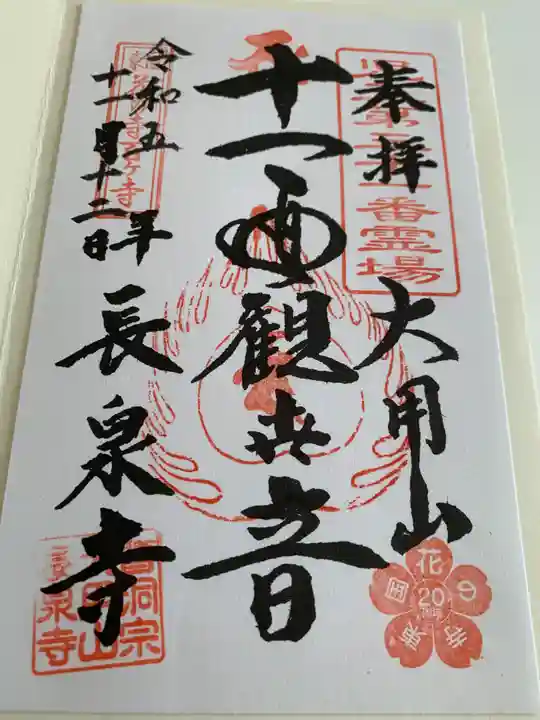 奉拝
大用山
十一面観世音
令和五年
十一月十二日
長泉寺
番霊場
曹洞宗
長泉寺
花
の
寺
20